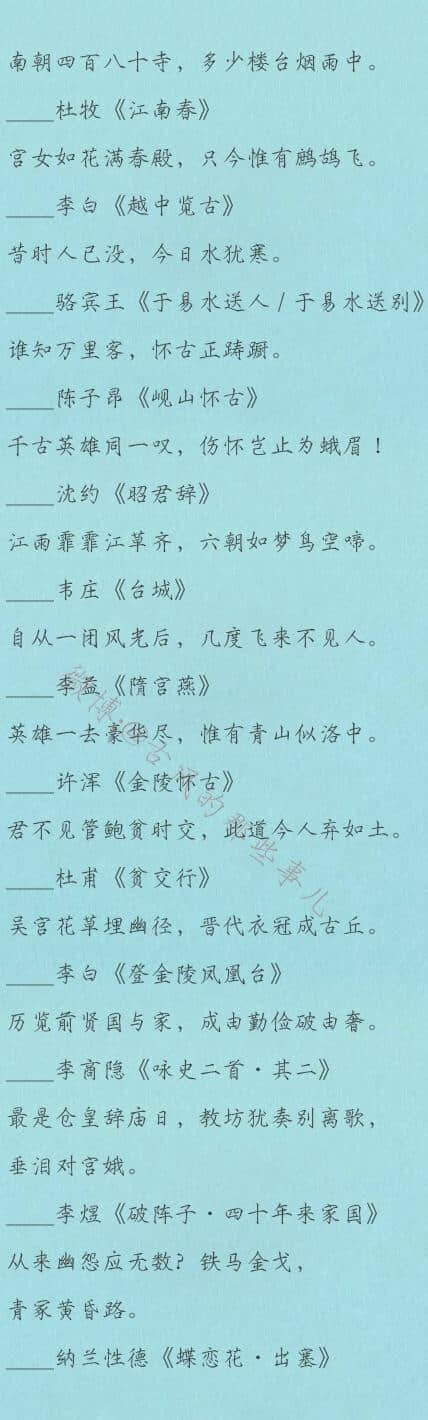 南朝四百八十寺，多少楼台烟雨中。
____杜牧《江南春》
宫女如花满春殿，只今惟有鹧鸪飞。
____李白《越中览古》
昔时人已没，今日水犹寒。
____骆宾王《于易水送人 / 于易水送别》
谁知万里客，怀古正踌蹰。
____陈子昂《岘山怀古》
千古英雄同一叹，伤怀岂止为蛾眉！
____沈约《昭君辞》
江雨霏霏江草齐，六朝如梦鸟空啼。
____韦庄《台城》
自从一闭风光后，几度飞来不见人。
____李益《隋宫燕》
英雄一去豪华尽，惟有青山似洛中。
____许浑《金陵怀古》
君不见管鲍贫时交，此道今人弃如土。
____杜甫《贫交行》
吴宫花草埋幽径，晋代衣冠成古丘。
____李白《登金陵凤凰台》
历览前贤国与家，成由勤俭破由奢。
____李商隐《咏史二首·其二》
最是仓皇辞庙日，教坊犹奏别离歌，
垂泪对宫娥。
____李煜《破阵子·四十年来家国》
从来幽怨应无数？铁马金戈，
青冢黄昏路。
____纳兰性德《蝶恋花·出塞》
微博:@古风的那些事儿